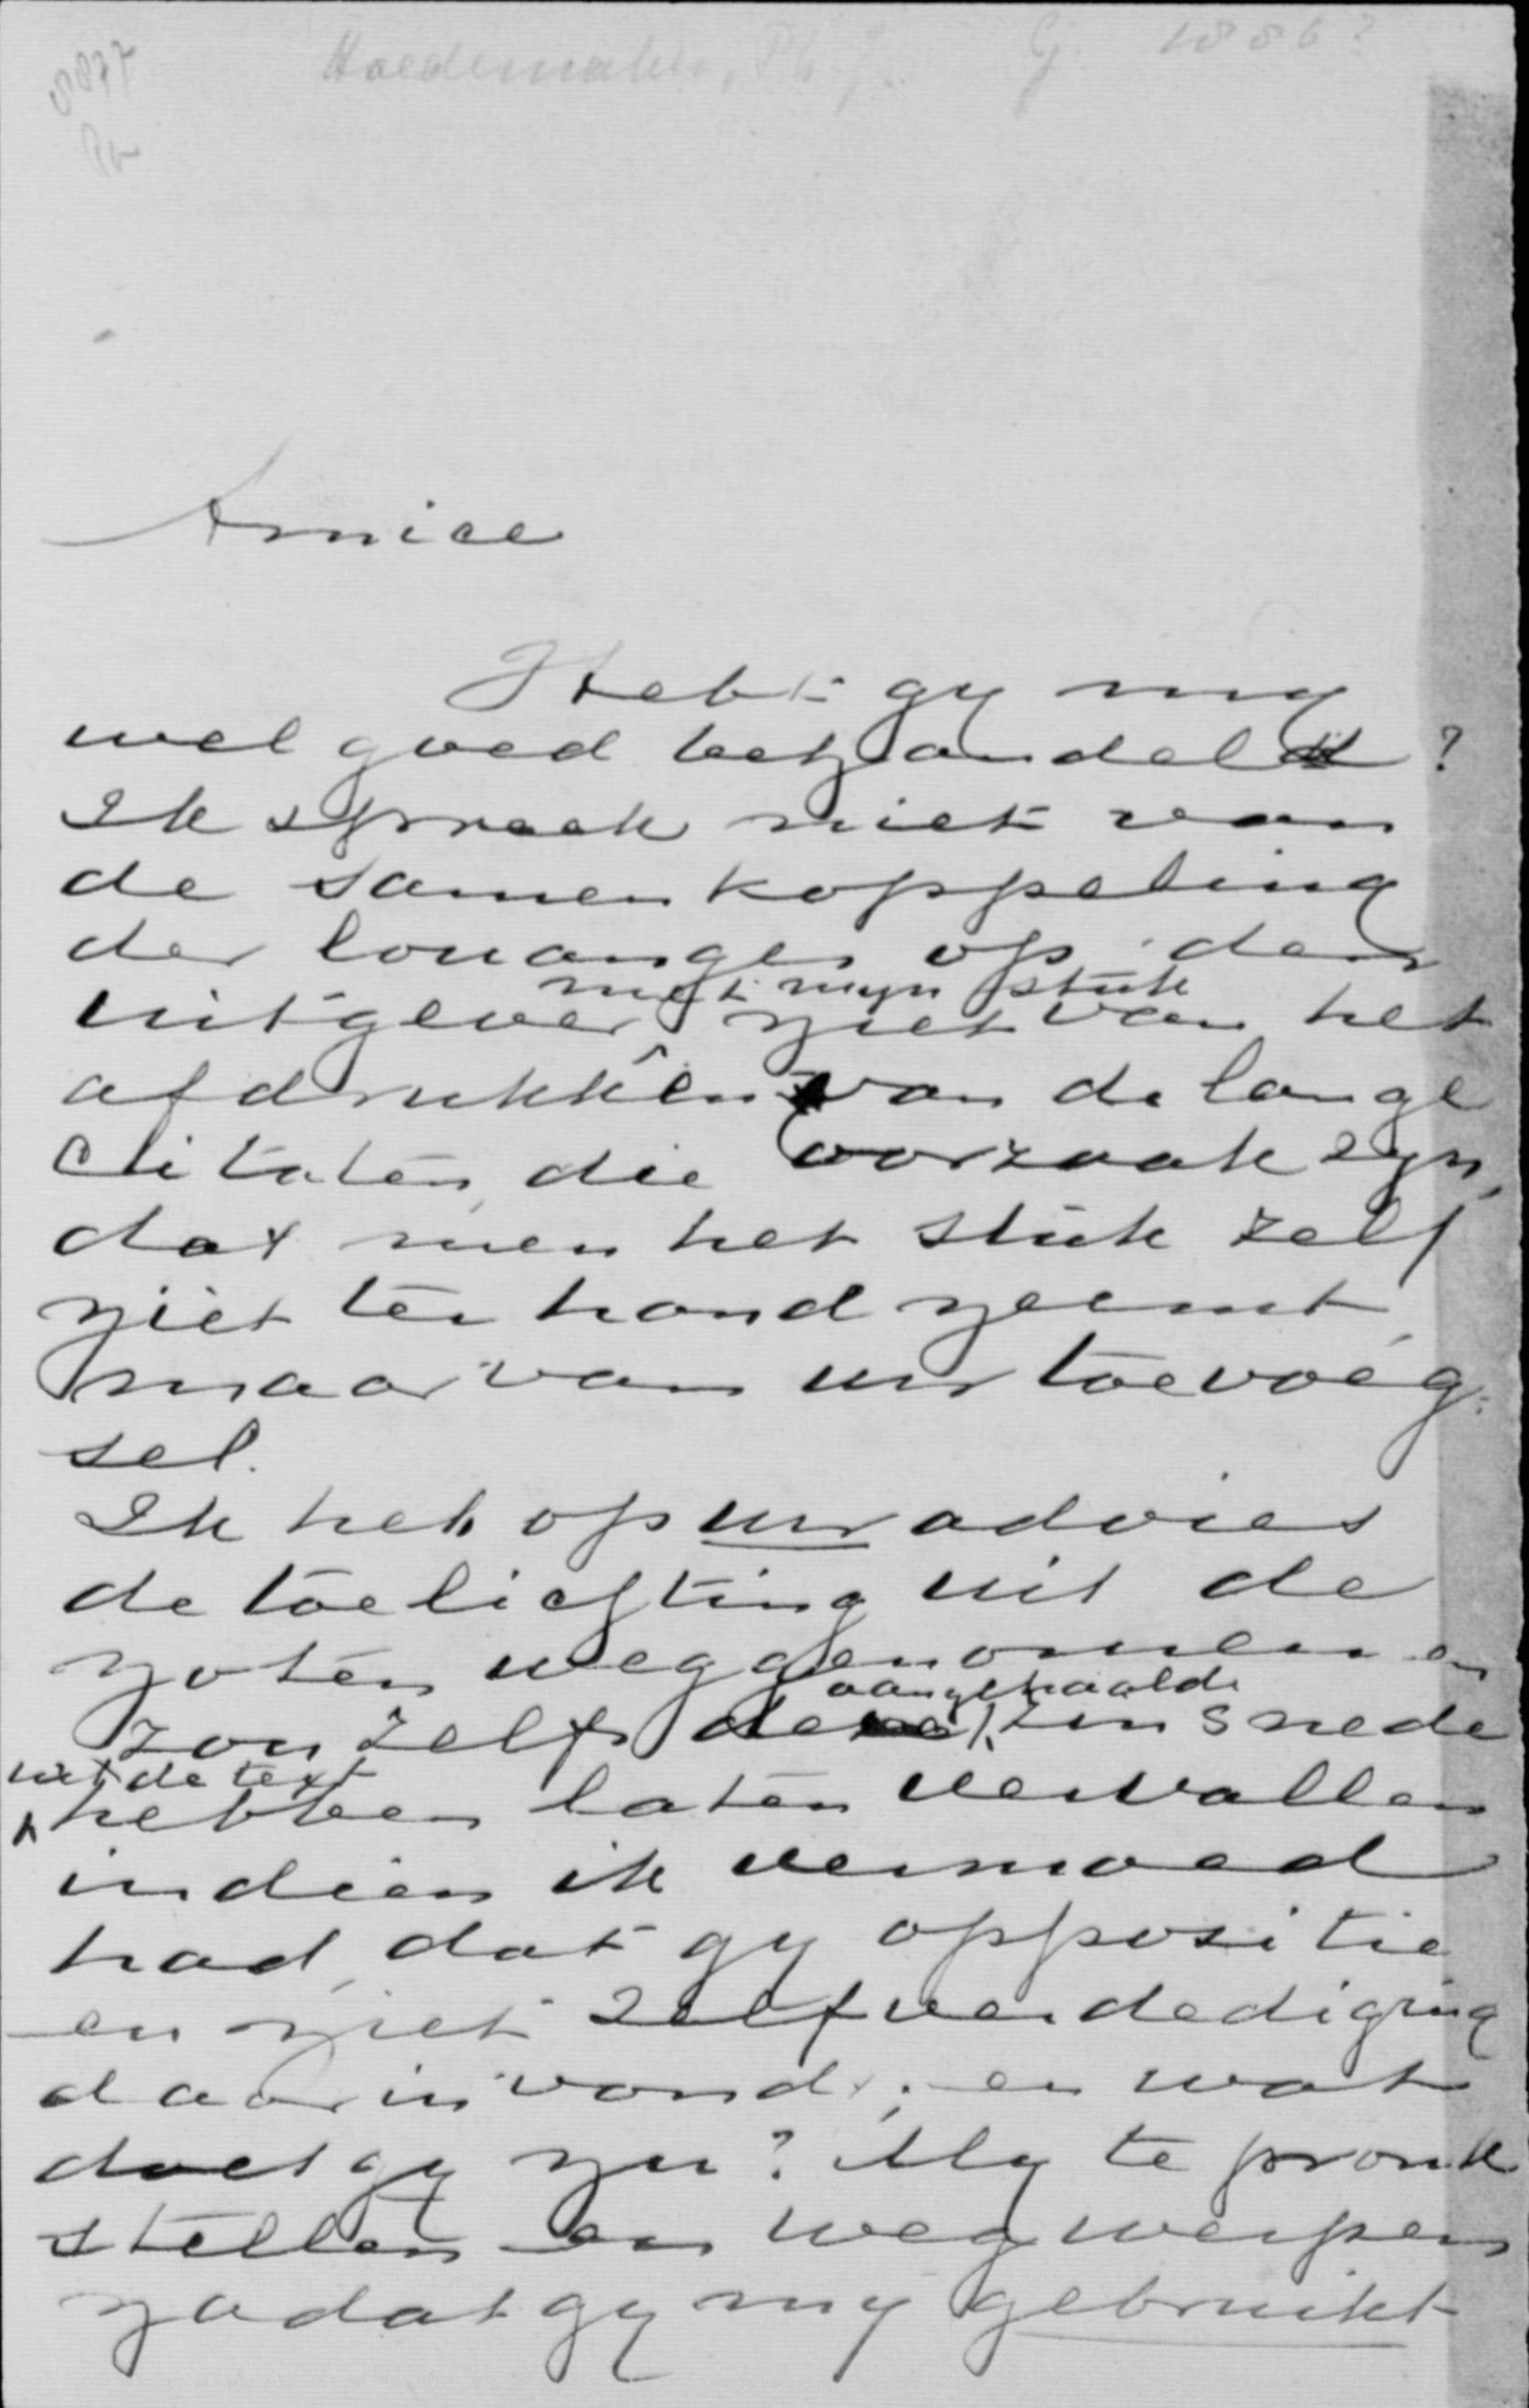 Hoedemaker, Ph. J. G. 1886?
Amice
Hebt gy my
wel goed behandeld?
Ik spreek niet van
de samenkoppeling
der louanges op den
uitgever met myn stuk niet van het
afdrukken van de lange
citaten, die oorzaak zyn,
dat men het stuk zelf
niet ter hand neemt,
maar van uw toevoeg-
sel.
Ik heb op uw advies
de toelichting uit de
noten weggenomen en
zou zelfs de aangehaalde zinsnede
uit de text hebben laten vervallen
indien ik vermoed
had, dat gy oppositie
en niet zelfverdediging
daarin vond; en wat
doet gy nu? My te pronk
stellen en wegwerpen
nadat gy my gebruikt